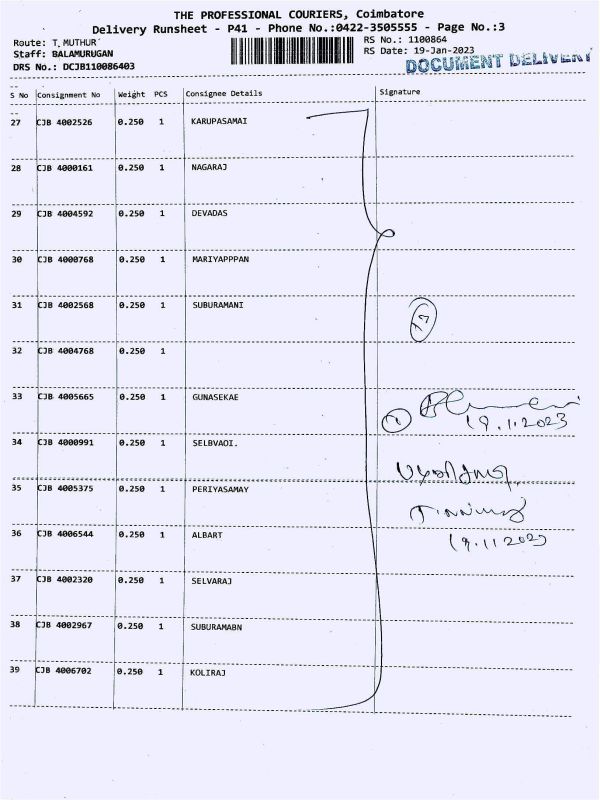 THE PROFESSIONAL COURIERS, Coimbatore
Delivery Runsheet - P41 - Phone No.:0422-3505555 - Page No.:3
Route: T. MUTHUR RS No.: 1100864
Staff: BALAMURUGAN RS Date: 19-Jan-2023
DRS No.: DCJB110086403 DOCUMENT DELIVERY
S No Consignment No Weight PCS Consignee Details Signature
27 CJB 4002526 0.250 1 KARUPASAMAI
28 CJB 4000161 0.250 1 NAGARAJ
29 CJB 4004592 0.250 1 DEVADAS
30 CJB 4000768 0.250 1 MARIYAPPPAN
31 CJB 4002568 0.250 1 SUBURAMANI
32 CJB 4004768 0.250 1
33 CJB 4005665 0.250 1 GUNASEKAE
19.1.2023
34 CJB 4000991 0.250 1 SELBVAOI.
35 CJB 4005375 0.250 1 PERIYASAMAY
36 CJB 4006544 0.250 1 ALBART
19.11 2023
37 CJB 4002320 0.250 1 SELVARAJ
38 CJB 4002967 0.250 1 SUBURAMABN
39 CJB 4006702 0.250 1 KOLIRAJ